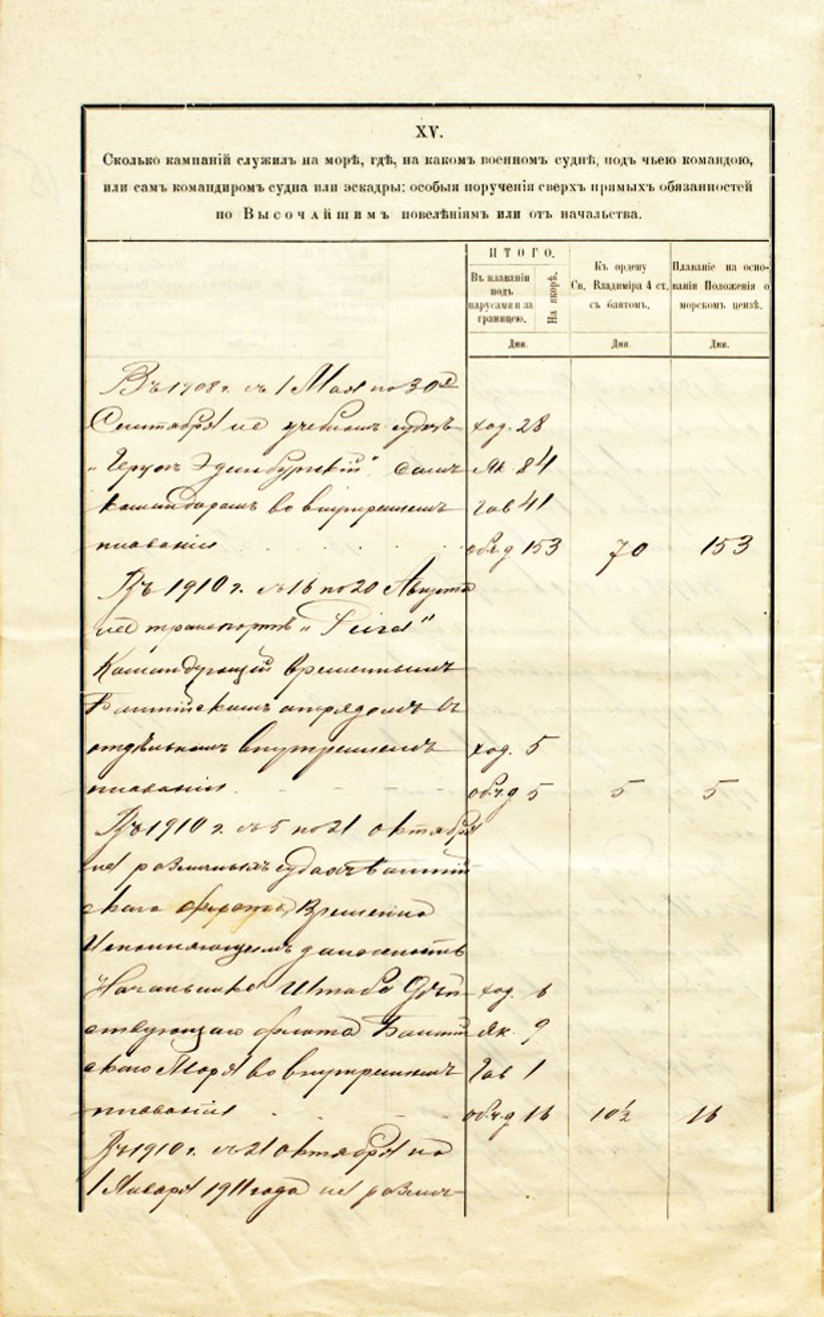 XV.
Сколько кампаній служилъ на морѣ, гдѣ, на какомъ военномъ суднѣ, подъ чьею командою,
или самъ командиромъ судна или эскадры: особыя порученія сверхъ прямыхъ обязанностей
по Высочайшимъ повелѣніямъ или отъ начальства.
ИТОГО.
Въ плаваніи подъ парусами и за границею.
На якорѣ.
Къ ордену Св. Владиміра 4 ст. съ бантомъ.
Плаваніе на основаніи Положенія о морскомъ цензѣ.
Дни. Дни. Дни.
Въ 1908 г. съ 1 Мая по 30е
Сентября на учебномъ суднѣ ход. 28
„Герцогъ Эдинбургскій" самъ Як. 84
командиромъ во внутреннемъ Гав 41
плаваніи общ. 153 70 153
Въ 1910 г. съ 16 по 20 Августа
на транспортѣ „Рига"
Командующій временнымъ
Балтійскимъ отрядомъ въ
отдѣльномъ внутреннемъ ход. 5
плаваніи 5 5 5
Въ 1910 г. съ 5 по 21 октября
на различныхъ судахъ Балтій
скаго флота, Временно
Исполняющимъ должность
Начальника Штаба Дѣй ход. 6
ствующаго флота Балтій Як. 9
скаго Моря во внутреннемъ Гав 1
плаваніи 16 10½ 16
Въ 1910 г. съ 21 октября по
1 Января 1911 года на различ-